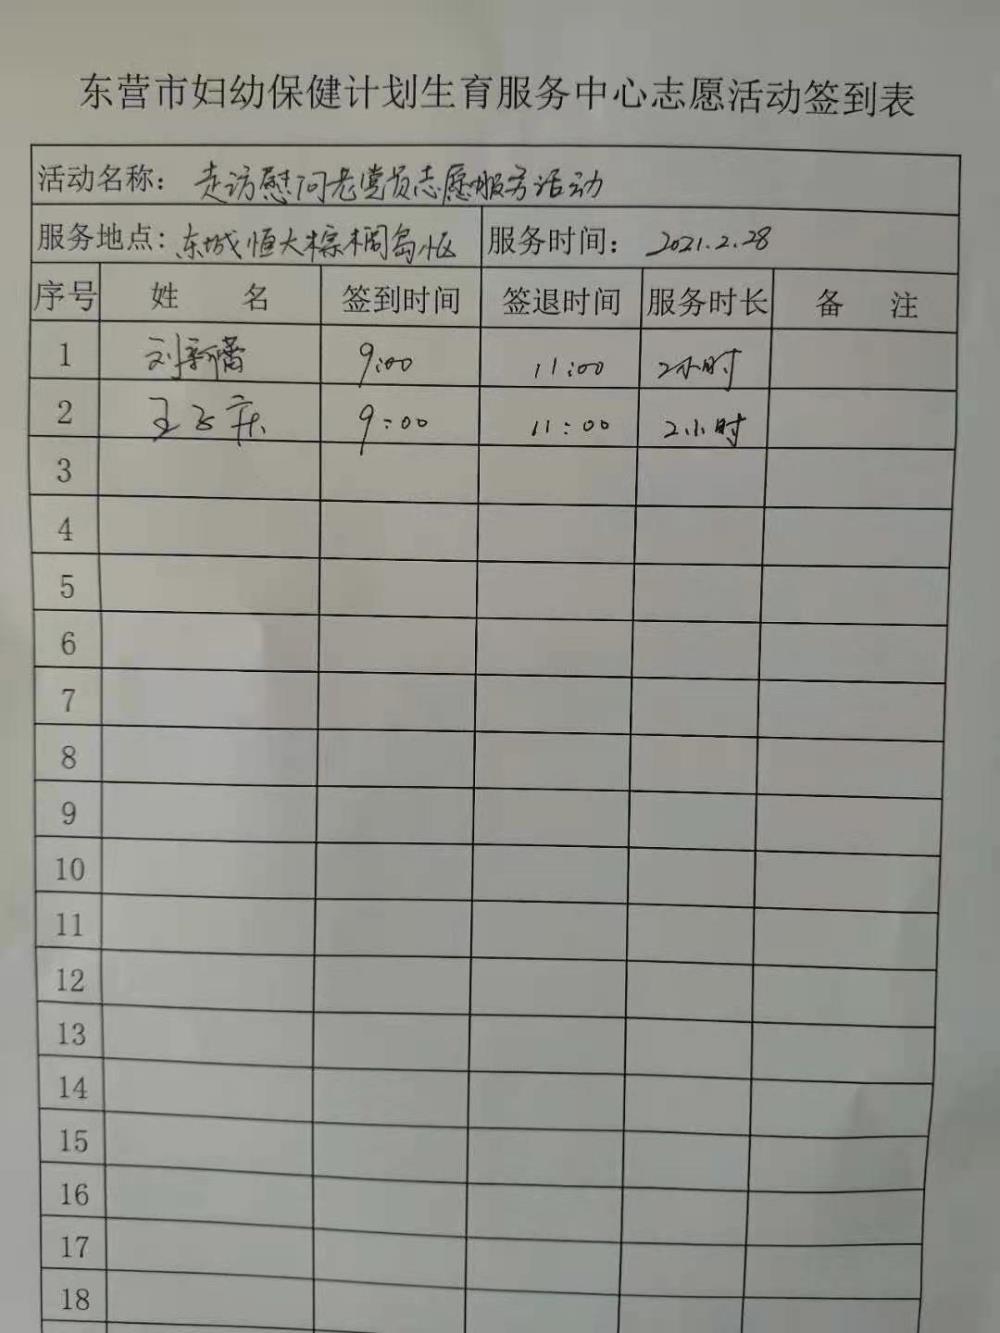 东营市妇幼保健计划生育服务中心志愿活动签到表
活动名称：走访慰问老党员志愿服务活动
服务地点：东城恒大棕榈岛小区 服务时间：2021.2.28
序号 姓 名 签到时间 签退时间 服务时长 备 注
1 刘新蕾 9:00 11:00 2小时
2 王 9:00 11:00 2小时
3
4
5
6
7
8
9
10
11
12
13
14
15
16
17
18